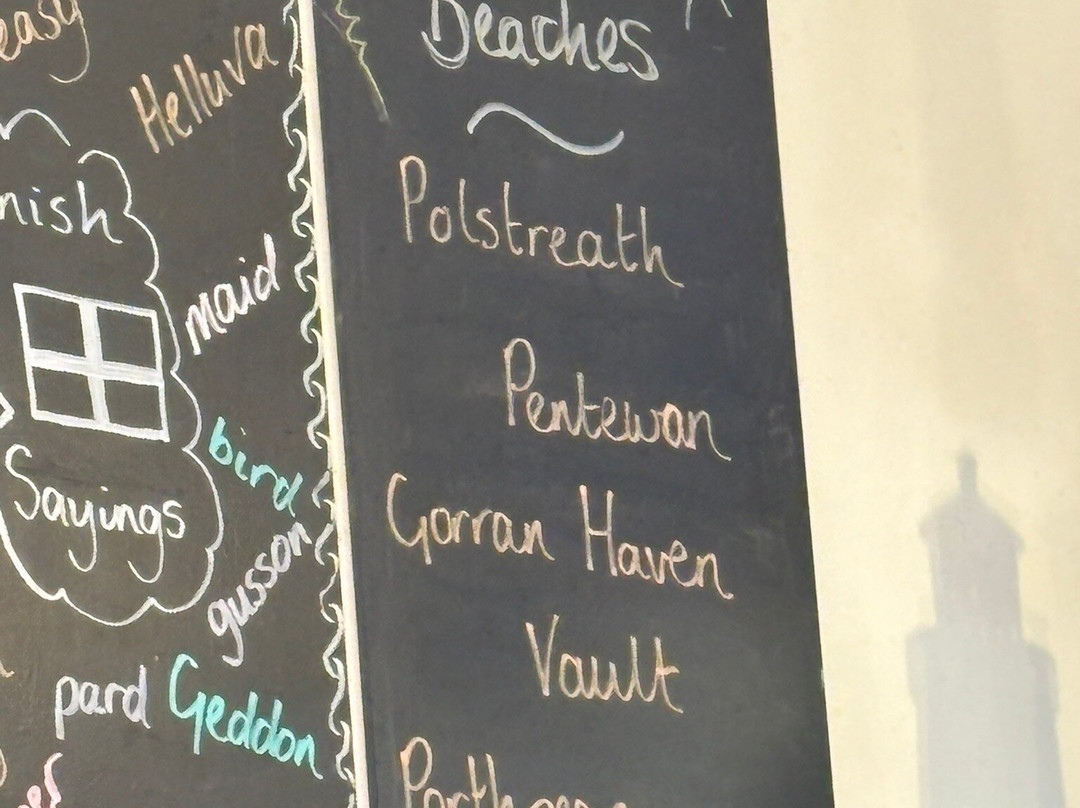 easy
Helluva
nish
maid
Sayings
bird
gusson
pard Geddon
Beaches
Polstreath
Pentewan
Gorran Haven
Vault